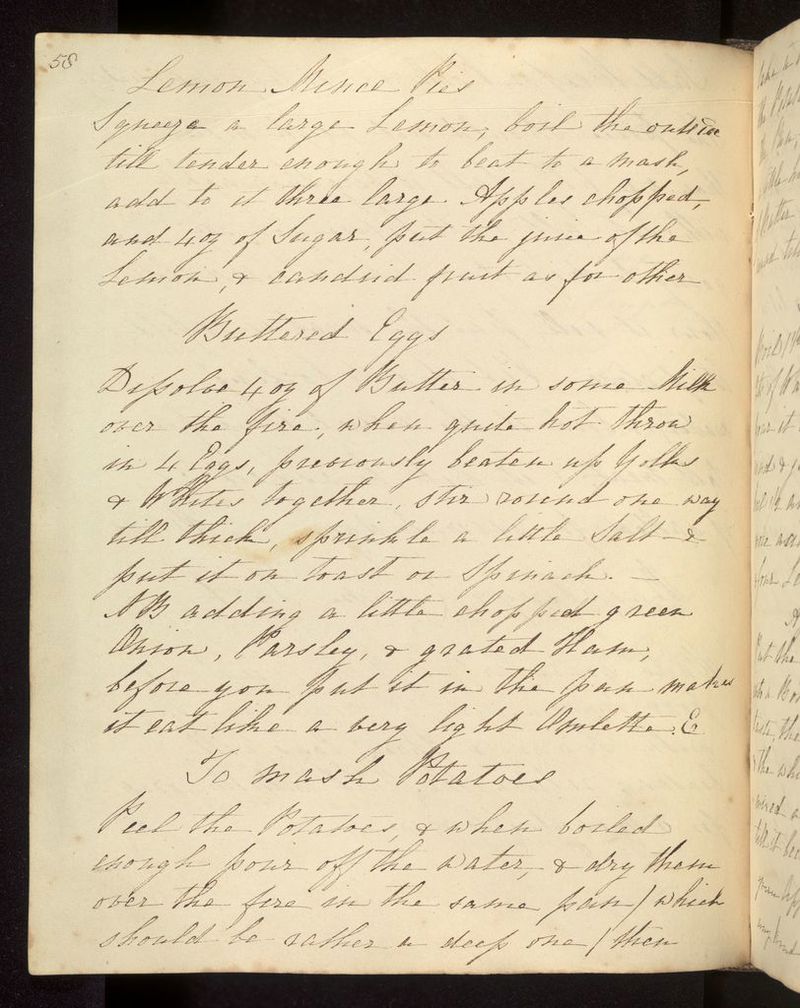 58
Lemon Mince Pies
Squeeze a large Lemon, boil the outside
till tender enough to beat to a mash,
add to it three large Apples chopped,
and 4 oz of Sugar, put the juice of the
Lemon, & candied fruit as for other
Buttered Eggs
Dissolve 4 oz of Butter in some Milk
over the fire, when quite hot throw
in 4 Eggs, previously beaten up Yolks
& Whites together, stir round one way
till thick, sprinkle a little Salt &
put it on toast or Spinach. —
NB adding a little chopped green
Onion, Parsley, & grated Ham,
before you put it in the pan makes
it eat like a very light Omlette. E
To mash Potatoes
Peel the Potatoes, & when boiled
enough pour off the water, & dry them
over the fire in the same pan / which
should be rather a deep one / then